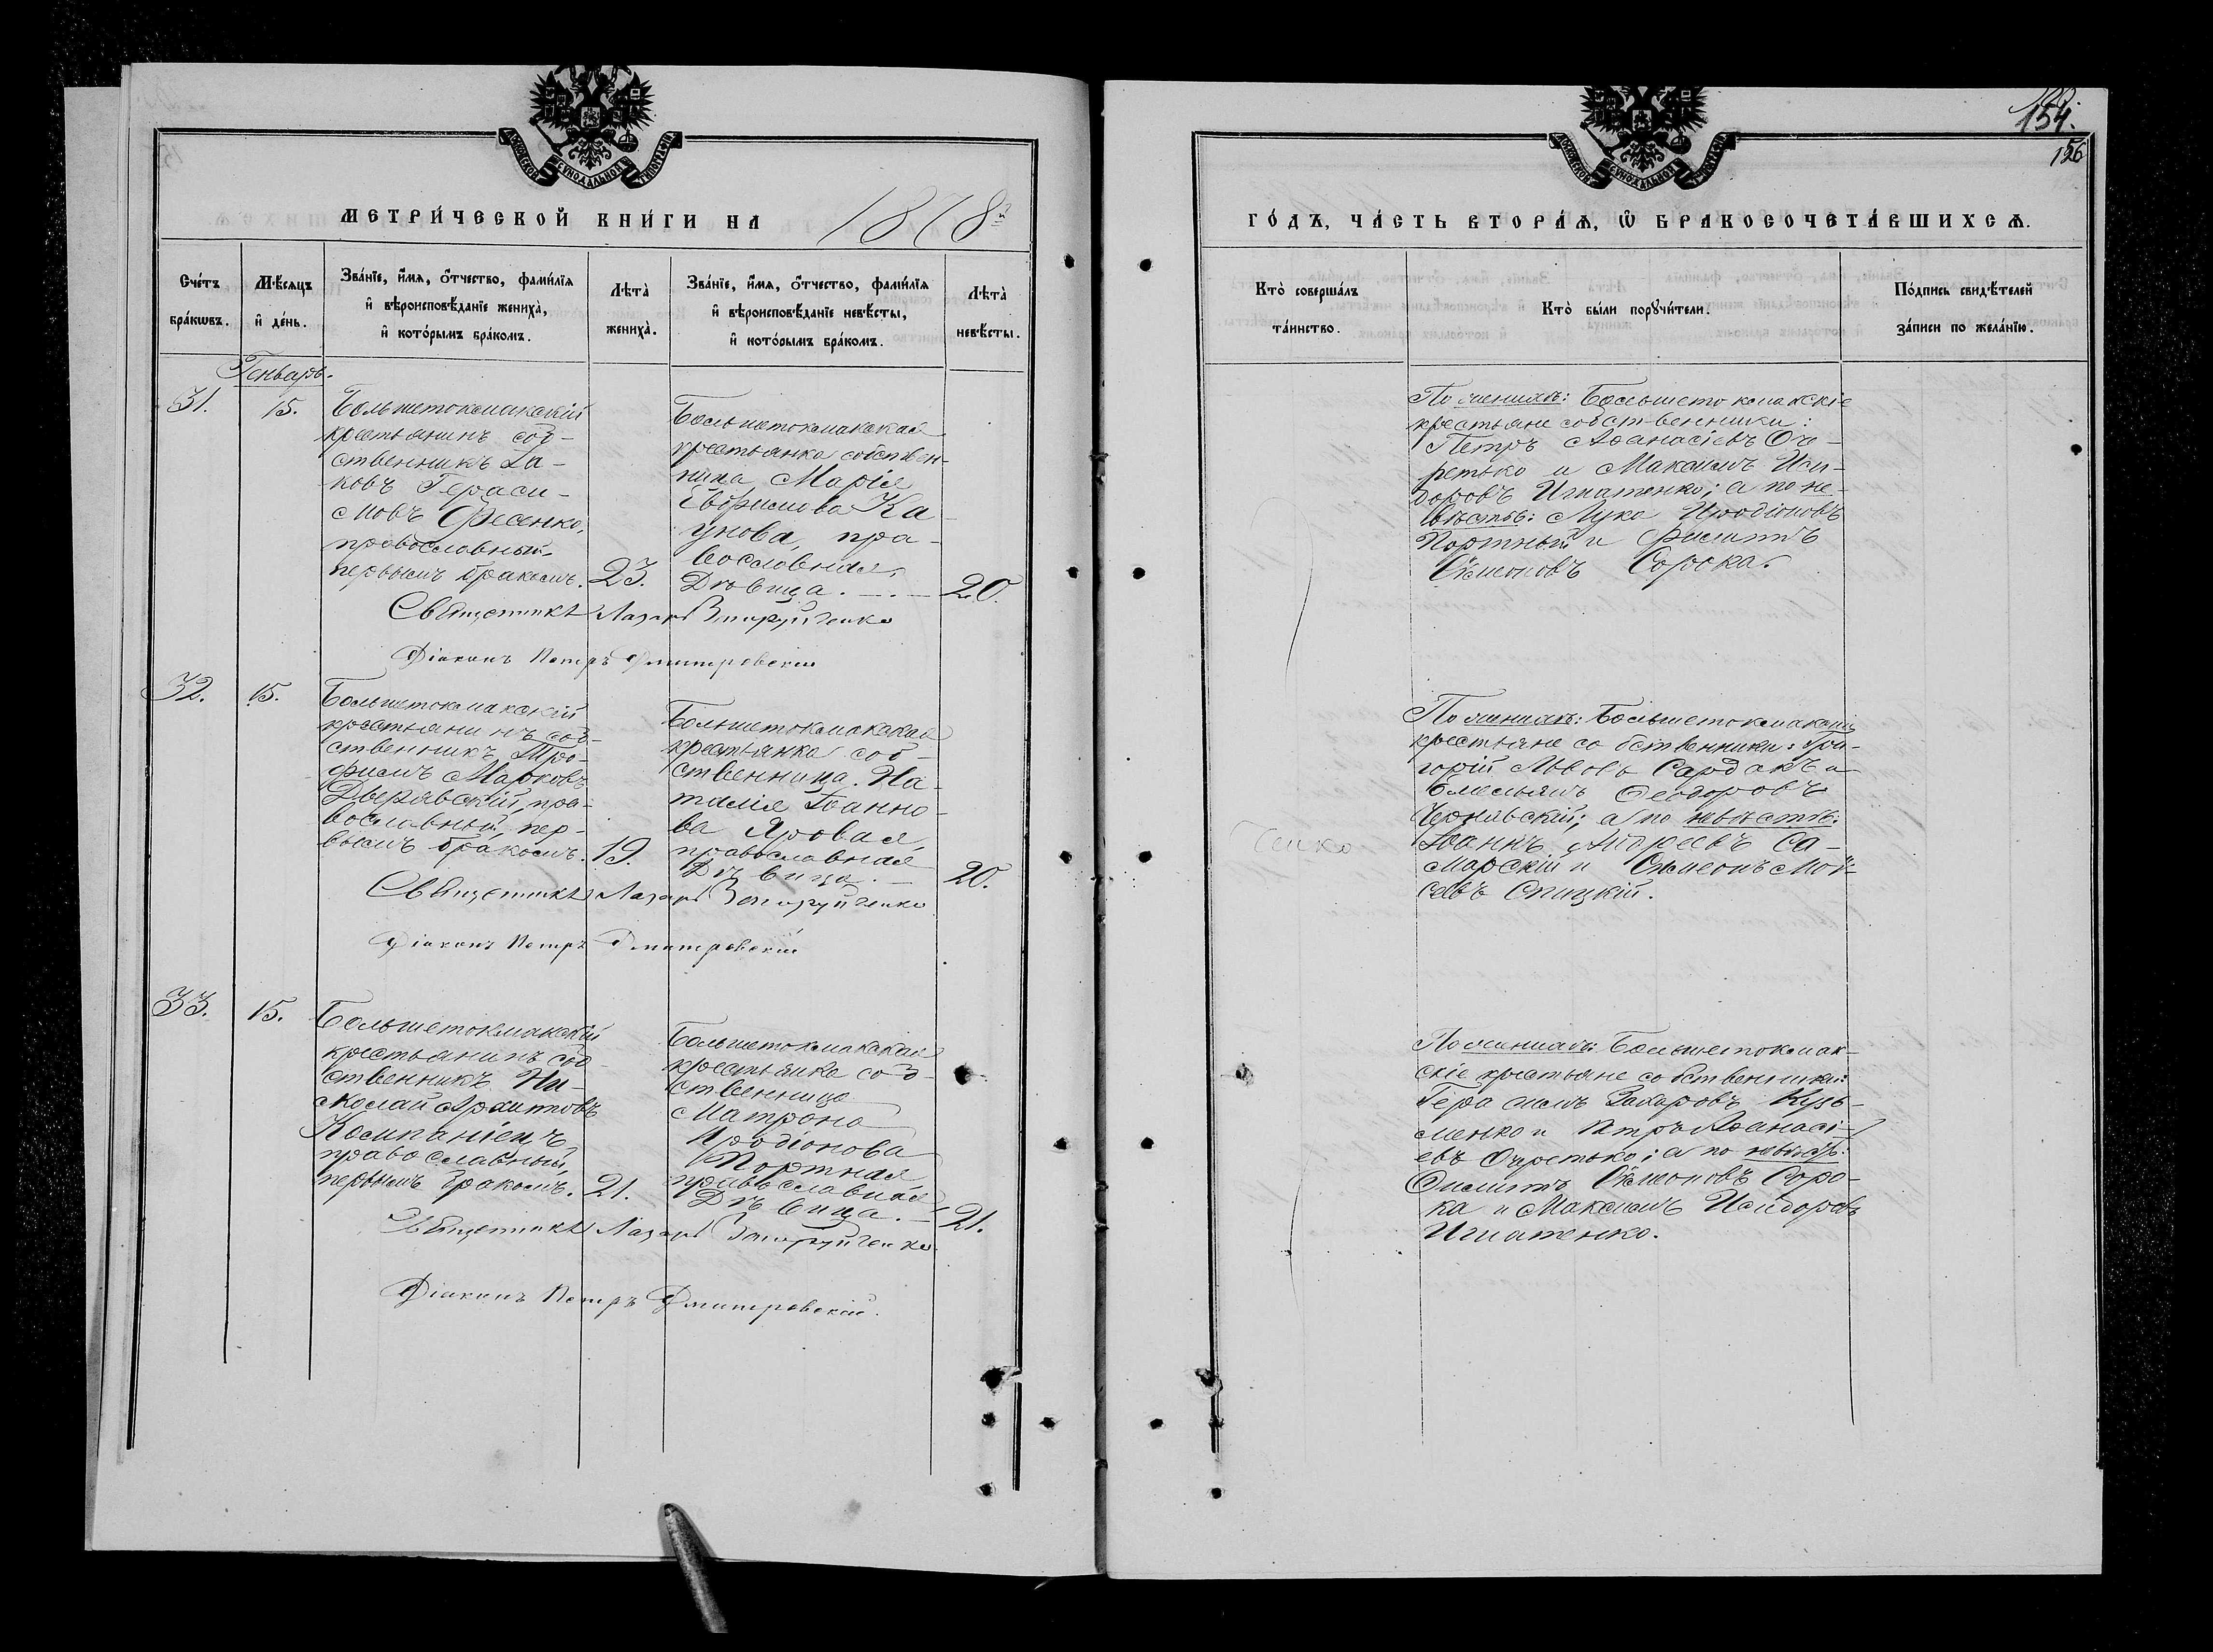 154.
156
МОСКОВСКОЙ СѴНОДАЛЬНОЙ ТИПОГРАФІИ
МЕТРИ́ЧЕСКОЙ КНИ́ГИ НА 1878й
МОСКОВСКОЙ СѴНОДАЛЬНОЙ ТИПОГРАФІИ
ГО́ДЪ, ЧА́СТЬ ВТОРА́Ѧ, Ѽ БРАКОСОЧЕТА́ВШИХСѦ.
Сче́тъ бра́кѡвъ.
Мѣ́сяцъ и҆ де́нь.
Зва́нїе, и҆́мѧ, ѻ҆́тчество, фами́лїѧ
и҆ вѣроисповѣ́данїе жениха̀,
и҆ кото́рымъ бра́комъ.
Лѣта̀ жениха̀.
Зва́нїе, и҆́мѧ, ѻ҆́тчество, фами́лїѧ
и҆ вѣроисповѣ́данїе невѣ́сты,
и҆ кото́рымъ бра́комъ.
Лѣта̀ невѣ́сты.
Кто̀ соверша́лъ
та́инство.
Кто̀ бы́ли порꙋчи́тели.
По́дпись свидѣ́телей
за́писи по жела́нїю.
Генварь.
31.
15.
Большетокмакскій
крестьянинъ соб-
ственникъ Іа-
ковъ Гераси-
мовъ Фесенко,
православный,
первымъ бракомъ.
23.
Большетокмакская
крестьянка собствен-
ница Марія
Евфимова Ка
унова, пра-
вославная,
Дѣвица.
20.
Священникъ Лазарь
Діаконъ Петръ Дмитровскій
По женихѣ: Большетокмакскіе
крестьяне собственники:
Петръ Аѳанасіевъ Оче-
ретько и Максимъ Иси-
доровъ Игнатенко; а по не-
вѣстѣ: Лука Иродіоновъ
Портный и Филиппъ
Симеоновъ Сорока.
32.
15.
Большетокмакскій
крестьянинъ соб-
ственникъ Тро-
фимъ Марковъ
Дверявскій, пра-
вославный, пер-
вымъ бракомъ.
19.
Большетокмакская
крестьянка соб-
ственница На-
талія Іоанно-
ва Яровая,
православная
Дѣвица.
20.
Священникъ Лазарь
Діаконъ Петръ Дмитровскій
По женихѣ: Большетокмакскіе
крестьяне собственники: Гри-
горій Львовъ Сардакъ и
Емельянъ Ѳеодоровъ
Чернявскій; а по невѣстѣ:
Іоаннъ Андреевъ Са-
марскій и Симеонъ Мои-
сеевъ Спицкій.
33.
15.
Большетокмакскій
крестьянинъ соб-
ственникъ Ни-
колай Архиповъ
Компаніецъ
православный,
первымъ бракомъ.
21.
Большетокмакская
крестьянка соб-
ственница
Матрона
Иродіонова
Портная
православная,
Дѣвица.
21.
Священникъ Лазарь
Діаконъ Петръ Дмитровскій.
По женихѣ: Большетокмак-
скіе крестьяне собственники:
Герасимъ Захаровъ Кузь-
менко и Петръ Аѳанасі-
евъ Очретько; а по невѣстѣ:
Филиппъ Симеоновъ Соро-
ка и Максимъ Исидоровъ
Игнатенко.